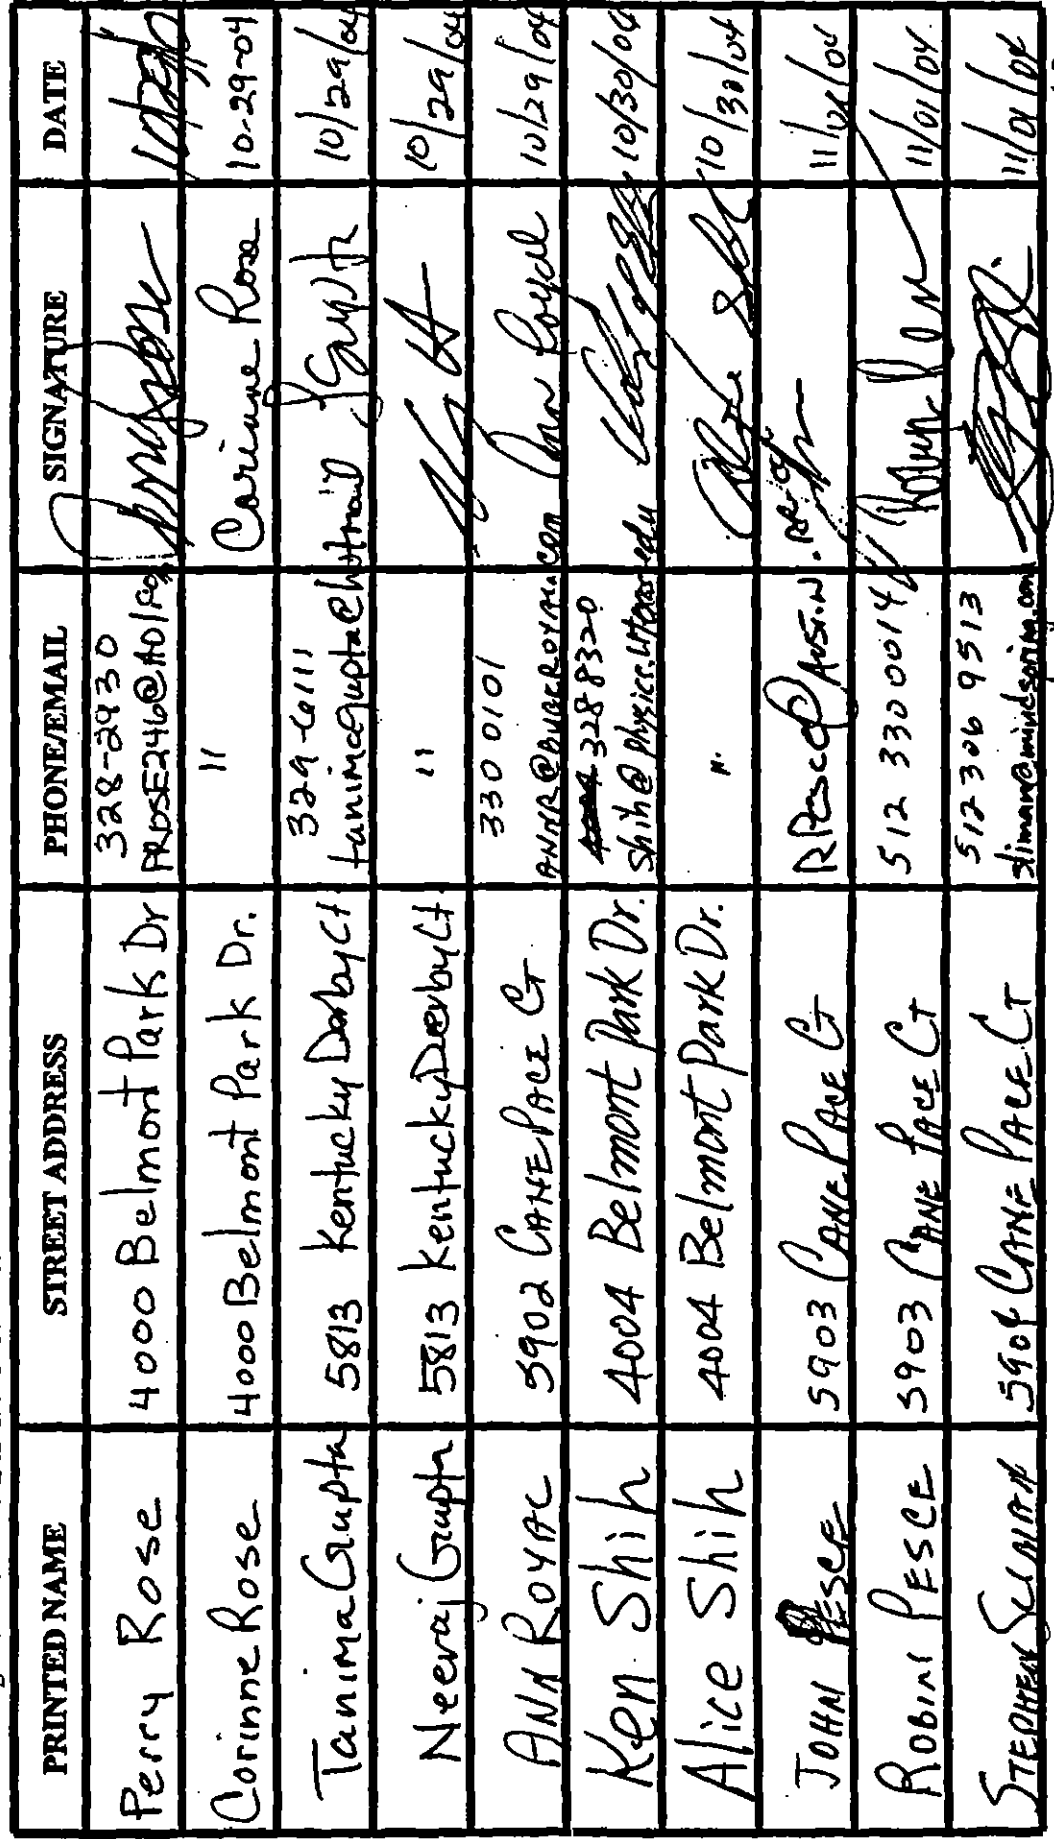 PRINTED NAME STREET ADDRESS PHONE/EMAIL SIGNATURE DATE
Perry Rose 4000 Belmont Park Dr 328-2930
PROSE246@AOL
Corinne Rose 4000 Belmont Park Dr. " Corinne Rose 10-29-04
Tanima Gupta 5813 Kentucky Derby Ct 329-6111 TGupta 10/29/04
tanimagupta@hotmail
Neeraj Gupta 5813 Kentucky Derby Ct " 10/29/04
ANN ROYAL 5902 CANE PACE CT 330 0101 Ann Royal 10/29/04
Ken Shih 4004 Belmont Park Dr. 328 8320 10/30/04
shih@physics.utexas.edu
Alice Shih 4004 Belmont Park Dr. " Alice Shih 10/30/04
JOHN PESCE 5903 CANE PACE CT RPesce@AUSTIN.RR. 11/01/04
ROBIN PESCE 5903 CANE PACE CT 512 330 0014 11/01/04
STEPHEN SLIMAN 5904 CANE PACE CT 512 306 9513 11/01/04
sliman@mindspring.com